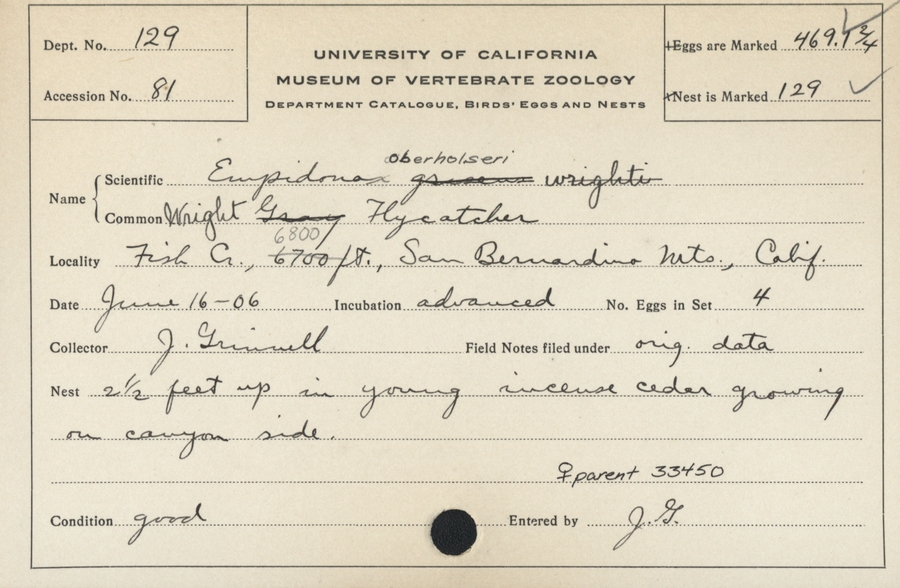 Dept. No. 129
Accession No. 81
UNIVERSITY OF CALIFORNIA
MUSEUM OF VERTEBRATE ZOOLOGY
DEPARTMENT CATALOGUE, BIRDS' EGGS AND NESTS
Eggs are Marked 469.1 2/4
Nest is Marked 129
oberholseri
Name
Scientific Empidonax griseus wrighti
Common Wright Gray Flycatcher
6800
Locality Fish Cr., 6700 ft., San Bernardino Mts., Calif.
Date June 16-06 Incubation advanced No. Eggs in Set 4
Collector J. Grinnell Field Notes filed under orig. data
Nest 2½ feet up in young incense cedar growing
on canyon side.
♀ parent 33450
Condition good Entered by J.G.